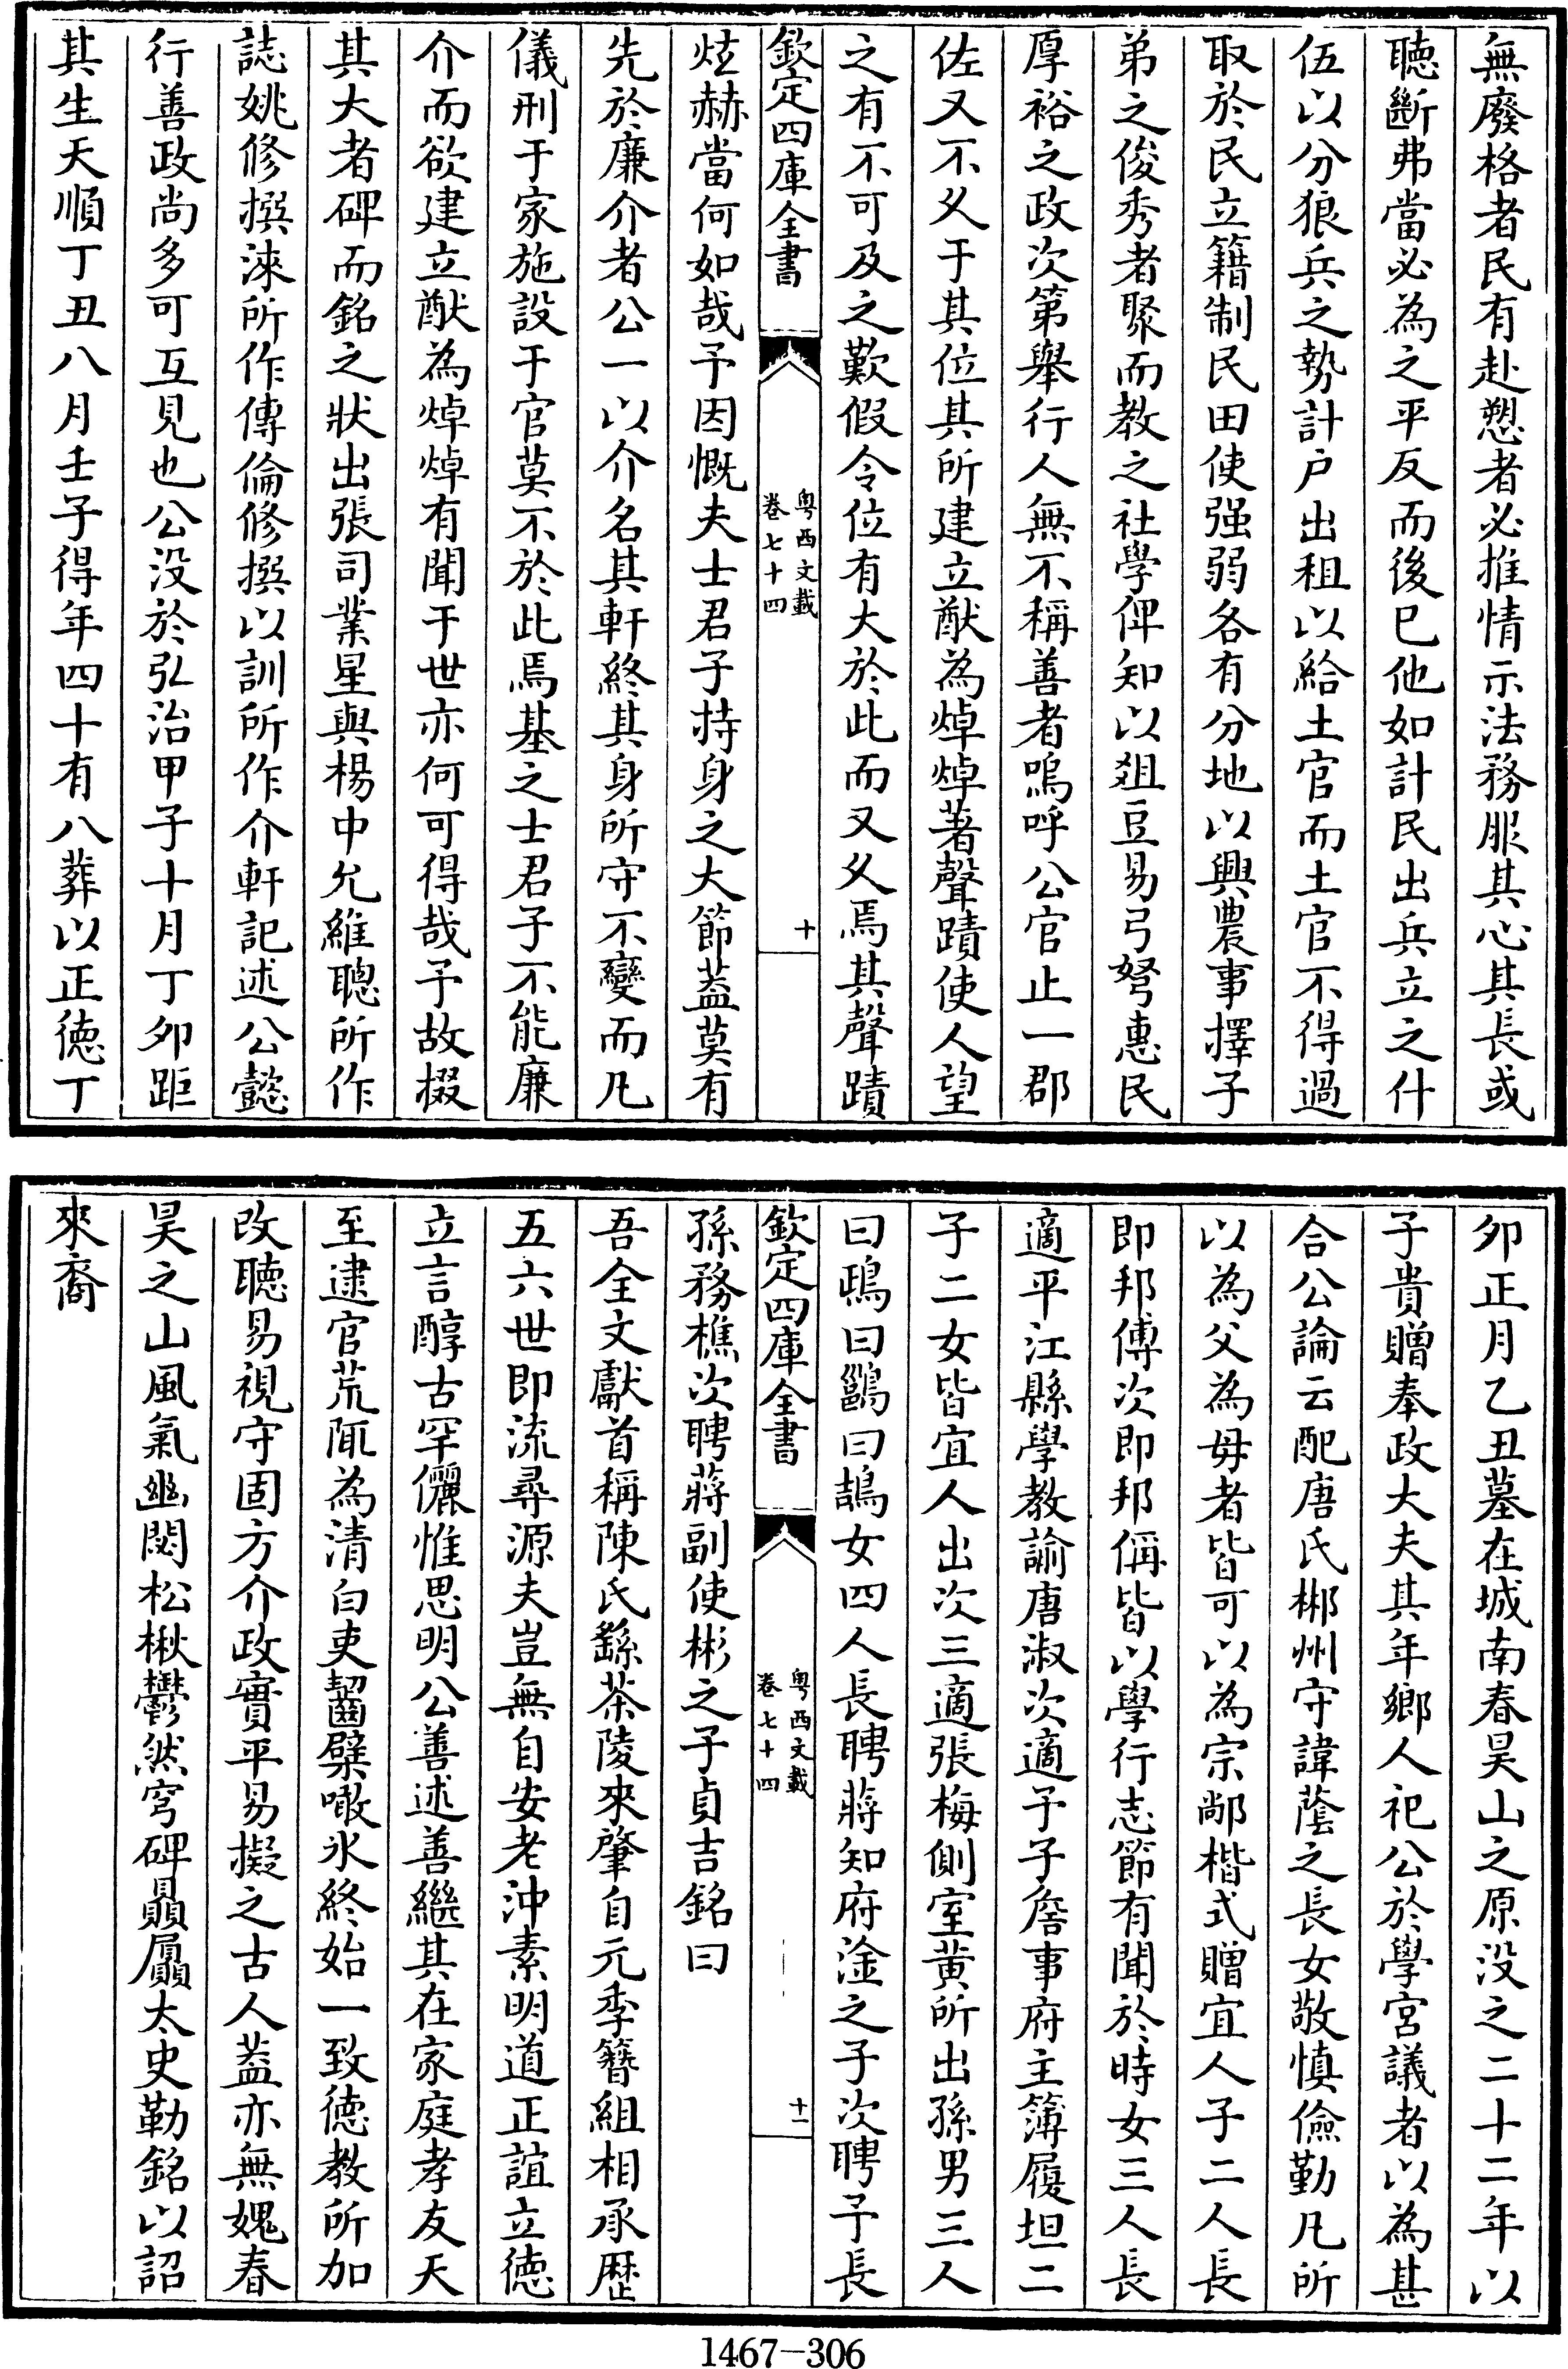 無廢格者民有赴愬者必推情示法務服其心其長或
聽斷弗當必為之平反而後已他如計民出兵立之什
伍以分狼兵之勢計户出租以給土官而土官不得過
取於民立籍制民田使强弱各有分地以興農事擇子
弟之俊秀者聚而教之社學俾知以爼豆易弓弩惠民
厚裕之政次第舉行人無不稱善者嗚呼公官止一郡
佐又不久于其位其所建立猷為焯焯著聲蹟使人望
之有不可及之歎假令位有大於此而又久焉其聲蹟
欽定四庫全書
粤西文載
卷七十四
十
炫赫當何如哉予因慨夫士君子持身之大節葢莫有
先於廉介者公一以介名其軒終其身所守不變而凡
儀刑于家施設于官莫不於此焉基之士君子不能廉
介而欲建立猷為焯焯有聞于世亦何可得哉予故掇
其大者碑而銘之狀出張司業星與楊中允維聰所作
誌姚修撰淶所作傳倫修撰以訓所作介軒記述公懿
行善政尚多可互見也公没於弘治甲子十月丁夘距
其生天順丁丑八月壬子得年四十有八葬以正德丁
夘正月乙丑墓在城南春昊山之原没之二十二年以
子貴贈奉政大夫其年鄉人祀公於學宮議者以為甚
合公論云配唐氏郴州守諱蔭之長女敬慎儉勤凡所
以為父為母者皆可以為宗鄗楷式贈宜人子二人長
即邦傅次即邦偁皆以學行志節有聞於時女三人長
適平江縣學教諭唐淑次適予子詹事府主簿履坦二
子二女皆宜人出次三適張梅側室黄所出孫男三人
曰鴟曰鷁曰鵠女四人長聘蔣知府淦之子次聘予長
欽定四庫全書
粤西文載
卷七十四
十一
孫務樵次聘蔣副使彬之子貞吉銘曰
吾全文獻首稱陳氏繇茶陵來肇自元季簪組相承歴
五六世即流尋源夫豈無自安老沖素明道正誼立德
立言醇古罕儷惟思明公善述善繼其在家庭孝友天
至逮官荒陬為清白吏齧櫱噉氷終始一致德教所加
改聽易視守固方介政實平易擬之古人葢亦無媿春
昊之山風氣幽閟松楸鬱然穹碑贔屭太史勒銘以詔
來裔
1467-306